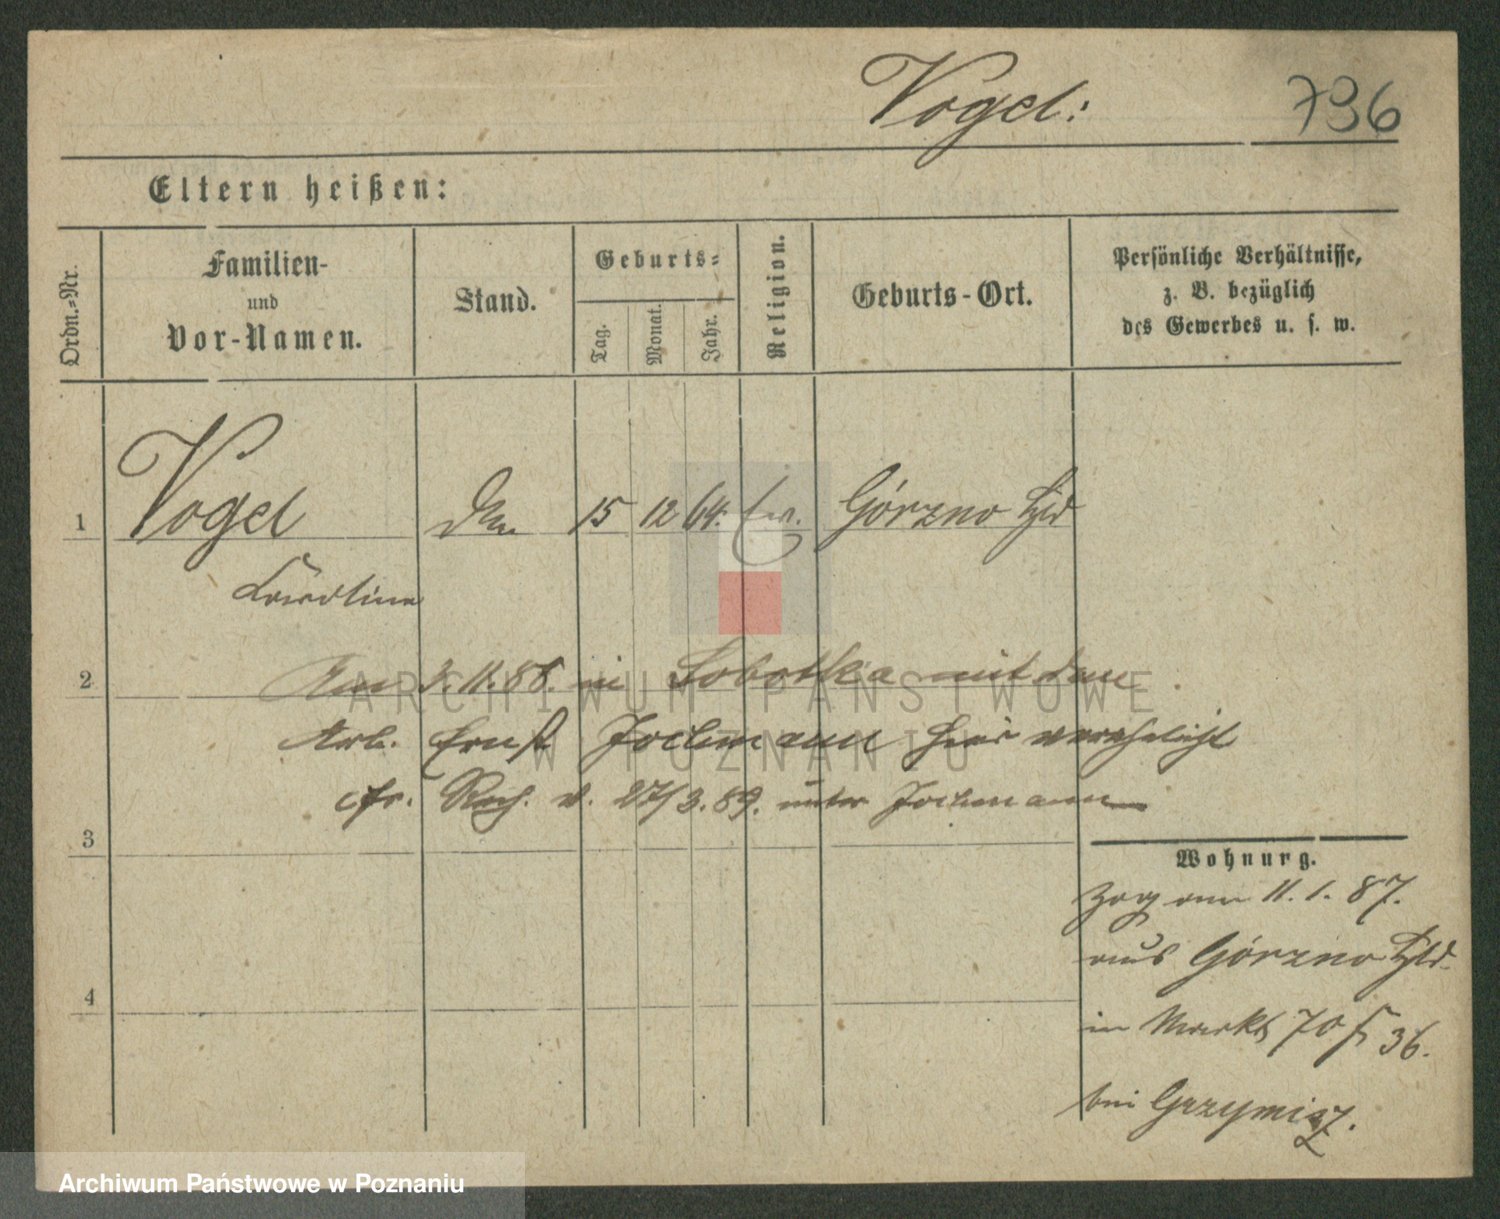 Vogel: 736
Eltern heißen:
Ordn.-Nr.
Familien-
und
Vor-Namen.
Stand.
Geburts-
Tag.
Monat.
Jahr.
Religion.
Geburts-Ort.
Persönliche Verhältnisse,
z. B. bezüglich
des Gewerbes u. s. w.
1 Vogel 15 12 64. Ev. Górzno
2
Am 3.11.88. in Sobotka mit dem
Arb. Ernst Jochmann hier verehelicht
cfr. v. 27/3.89. unter Jochmann
3
Wohnung.
Zog am 11.1.87.
aus Górzno
4
in Markt 70 36.
bei
ARCHIWUM PAŃSTWOWE
W POZNANIU
Archiwum Państwowe w Poznaniu